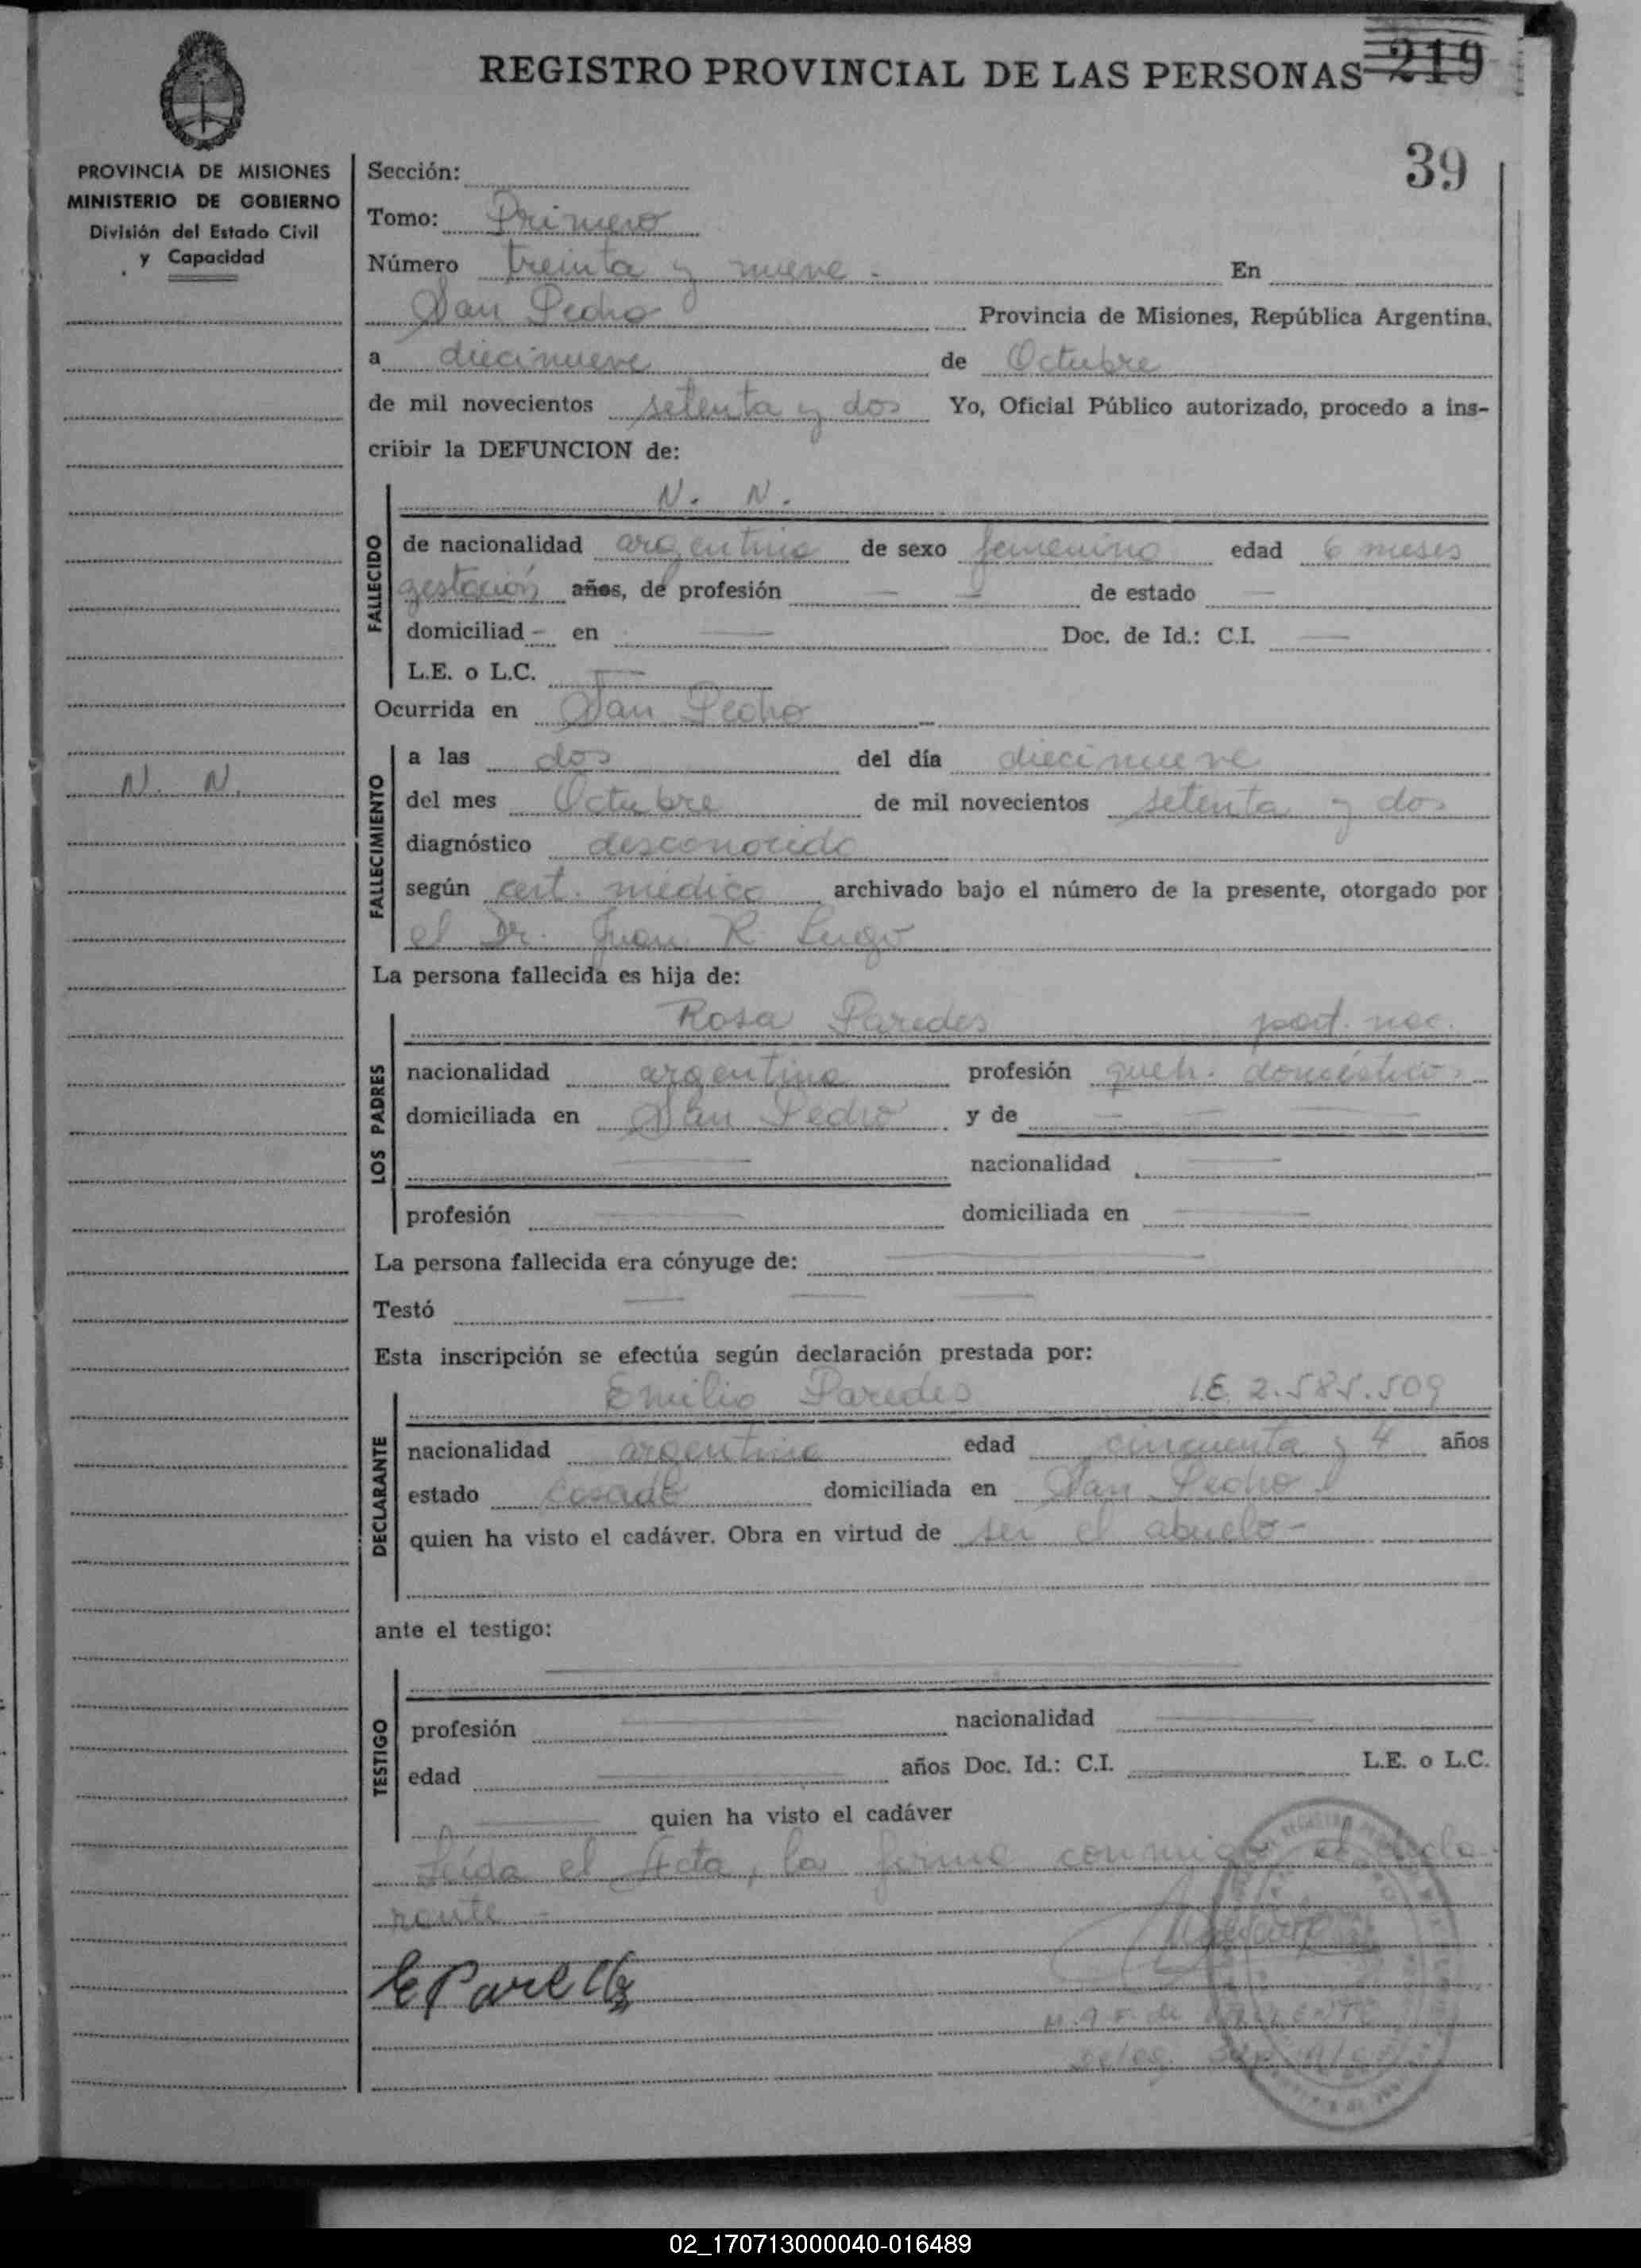 REGISTRO PROVINCIAL DE LAS PERSONAS 219
39
PROVINCIA DE MISIONES
MINISTERIO DE GOBIERNO
División del Estado Civil
y Capacidad
N. N.
Sección:
Tomo: Primero
Número treinta y nueve.- En
San Pedro Provincia de Misiones, República Argentina,
a diecinueve de Octubre
de mil novecientos setenta y dos Yo, Oficial Público autorizado, procedo a ins-
cribir la DEFUNCION de:
N. N.
FALLECIDO
de nacionalidad argentina de sexo femenino edad 6 meses
gestación años, de profesión — — de estado —
domiciliad - en — Doc. de Id.: C.I. —
L.E. o L.C. —
Ocurrida en San Pedro
FALLECIMIENTO
a las dos del día diecinueve
del mes Octubre de mil novecientos setenta y dos
diagnóstico desconocido
según cert. médico archivado bajo el número de la presente, otorgado por
el Dr. Juan R. Lugo
La persona fallecida es hija de:
LOS PADRES
Rosa Paredes
nacionalidad argentina profesión queh. domésticos
domiciliada en San Pedro y de — — —
— nacionalidad —
profesión — domiciliada en —
La persona fallecida era cónyuge de: —
Testó — — —
Esta inscripción se efectúa según declaración prestada por:
DECLARANTE
Emilio Paredes L.E. 2.585.509
nacionalidad argentina edad cincuenta y 4 años
estado casado domiciliada en San Pedro
quien ha visto el cadáver. Obra en virtud de ser el abuelo-
ante el testigo:
TESTIGO
profesión — nacionalidad —
edad — años Doc. Id.: C.I. L.E. o L.C.
— quien ha visto el cadáver
Leída el Acta, la firma conmigo el decla-
rante -
E Paredes
02_170713000040-016489